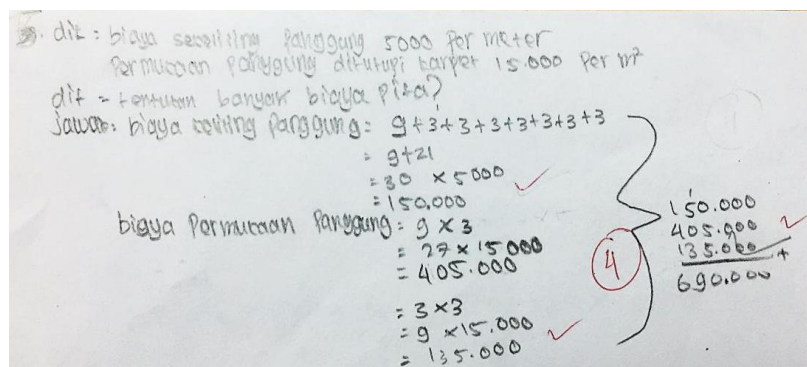 3. dik : biaya sekeliling Panggung 5000 Per meter
Permukaan Panggung ditutupi karpet 15.000 Per m²
dit = tentukan banyak biaya Pita?
jawab: biaya keliling Panggung = 9+3+3+3+3+3+3+3
= 9+21
= 30 × 5000
= 150.000
biaya Permukaan Panggung = 9 × 3
= 27 × 15000
= 405.000
= 3×3
= 9 ×15.000
= 135.000
4
150.000
405.000
135.000 +
690.000